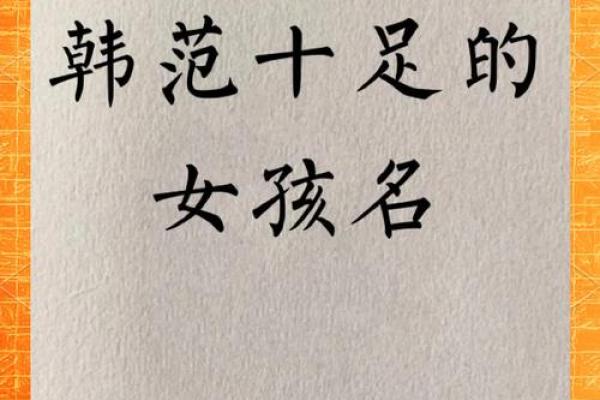 韩范十足的
女孩名